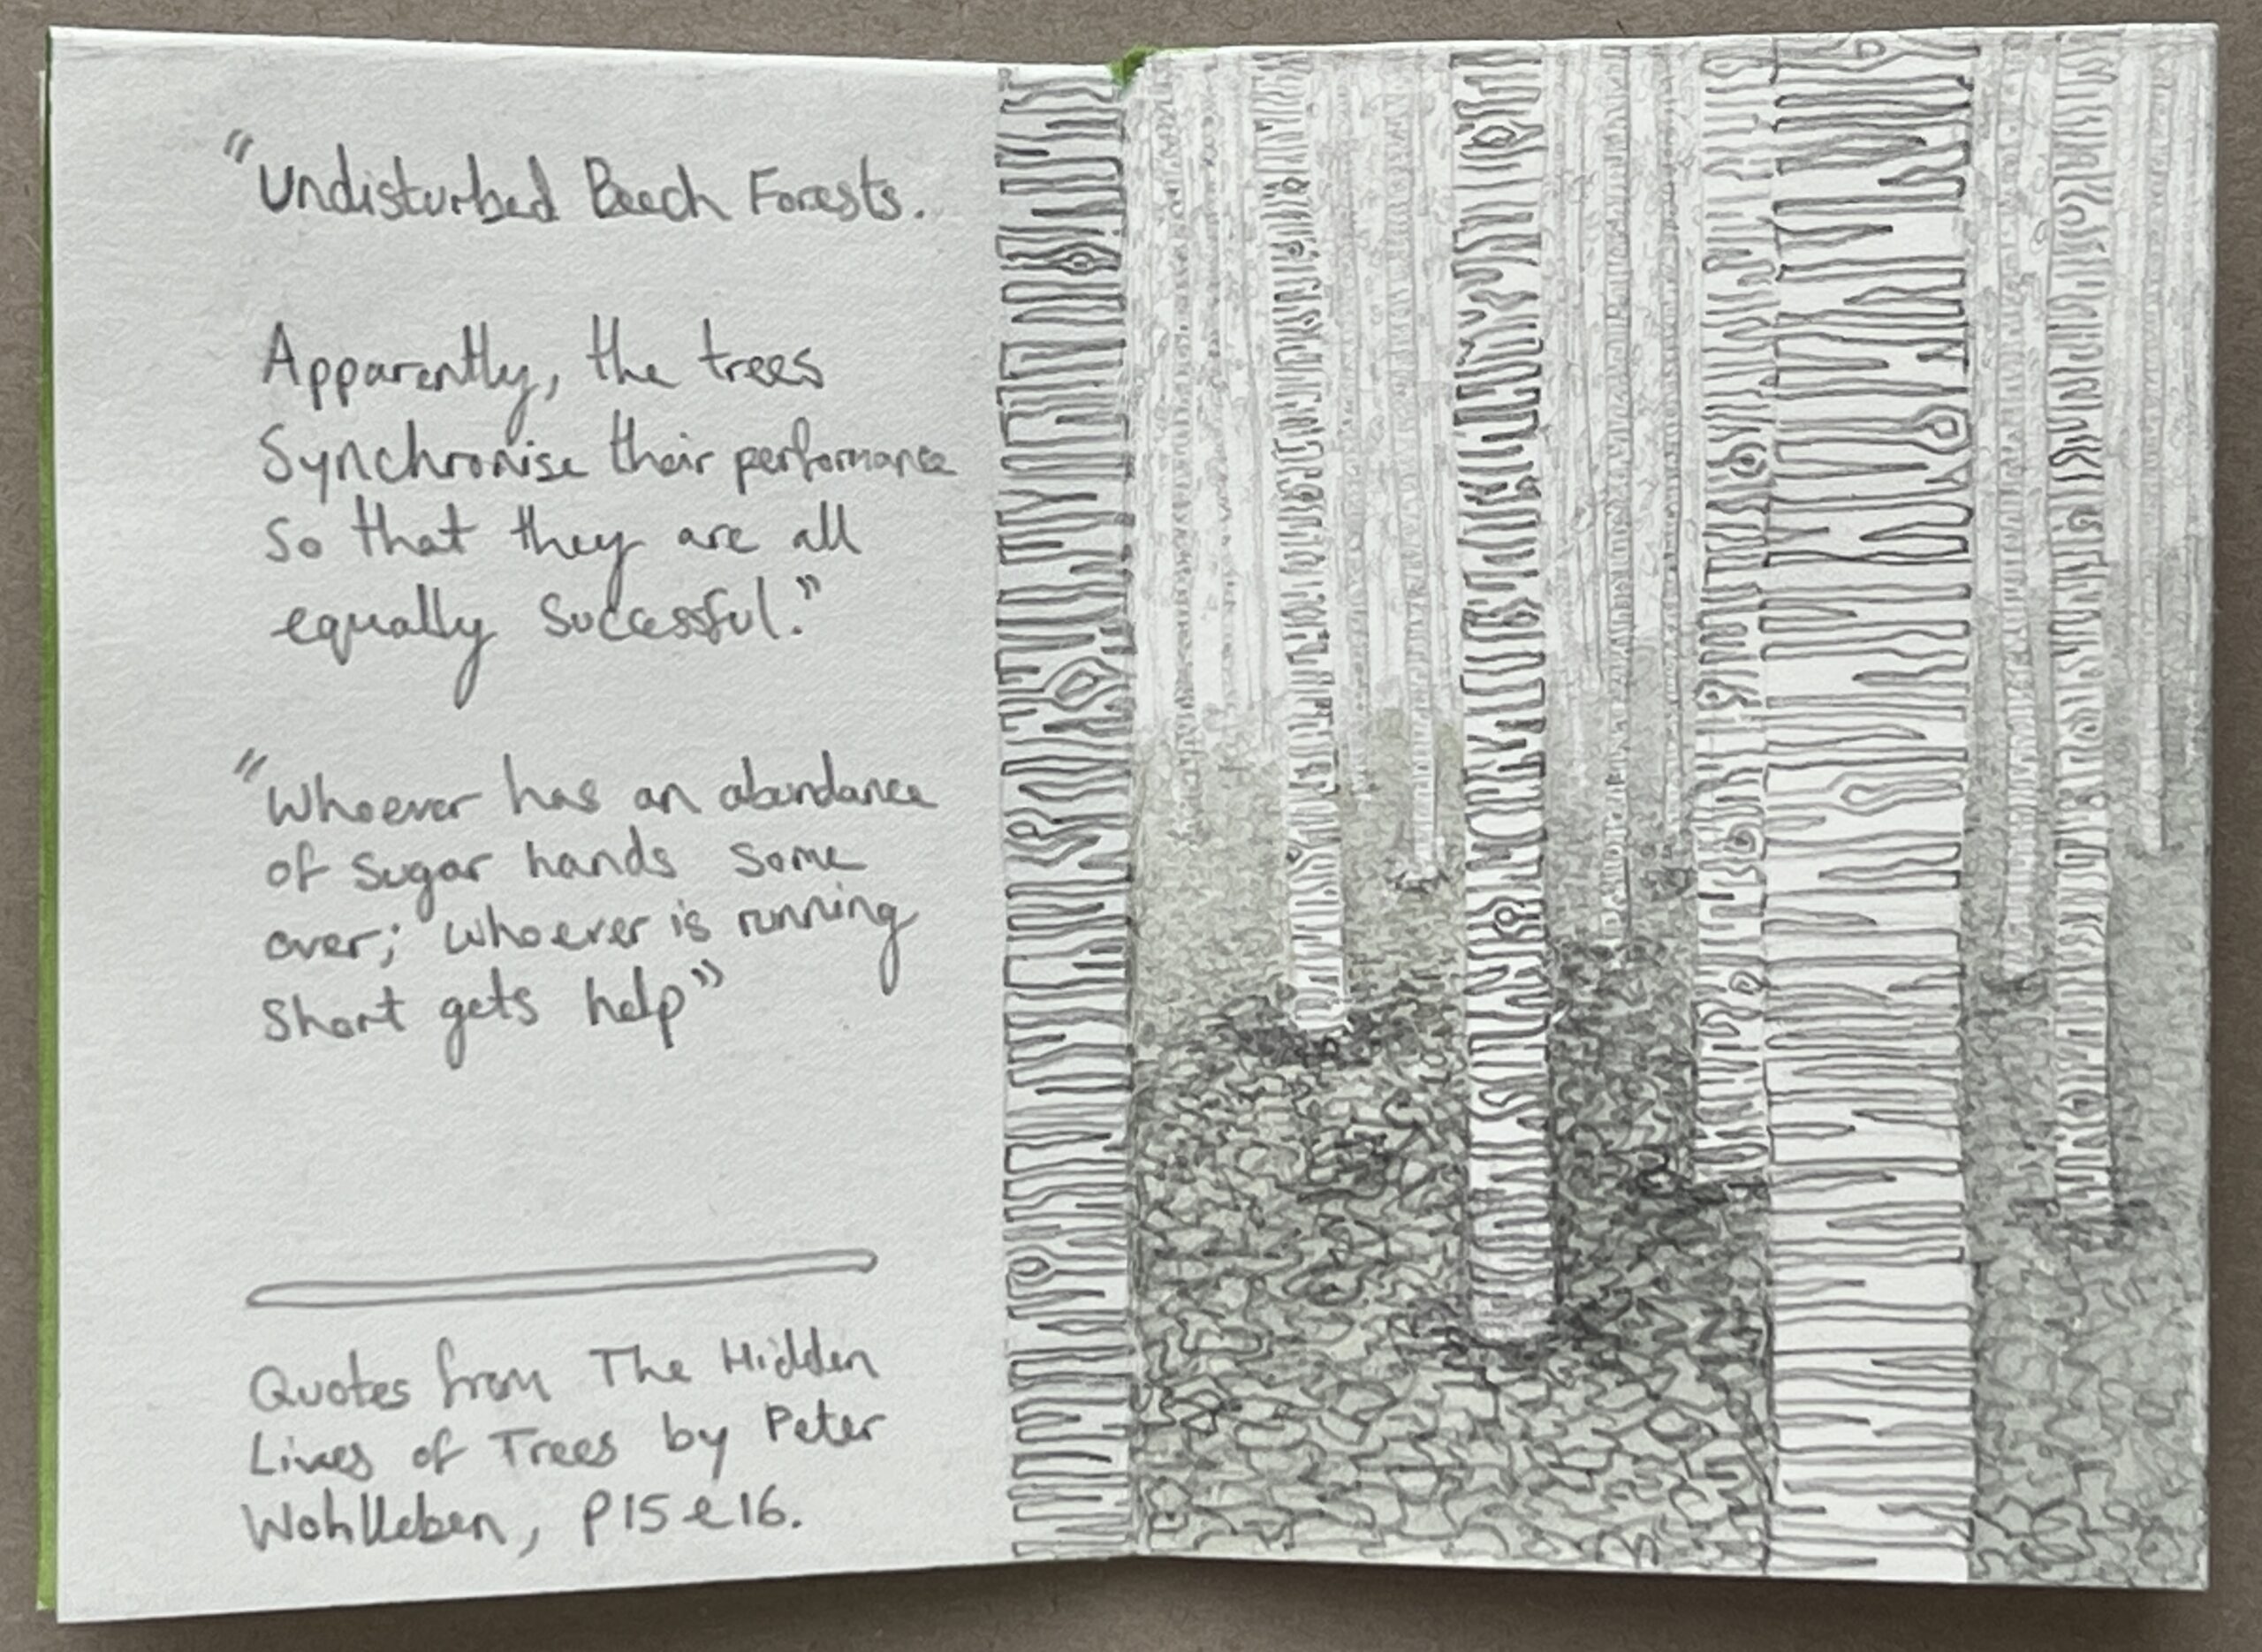 "Undisturbed Beech Forests.
Apparently, the trees
Synchronise their performance
So that they are all
equally Successful."
"Whoever has an abundance
of sugar hands some
over; whoever is running
Short gets help"
Quotes from The Hidden
Lives of Trees by Peter
Wohlleben, P15 & 16.